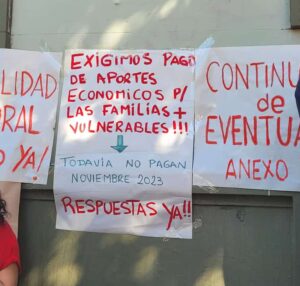 EXIGIMOS PAGO
DE APORTES
ECONOMICOS P/
LAS FAMILIAS +
VULNERABLES!!!
TODAVÍA NO PAGAN
NOVIEMBRE 2023
RESPUESTAS YA!!
LIDAD
RAL
O YA!
CONTINU
de
EVENTUA
ANEXO